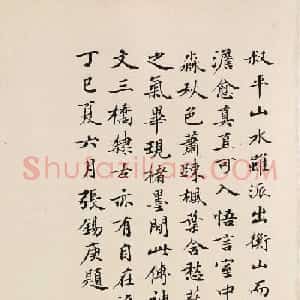 叔平山水雖派出衡山而
澹愈真直可入悟言室中
淼以色蕭疎楓葉含愁
之氣畢現楮墨間此傳神
文三橋隸古亦有自在
丁巳夏六月張錫庚題
Shufaziliao.com